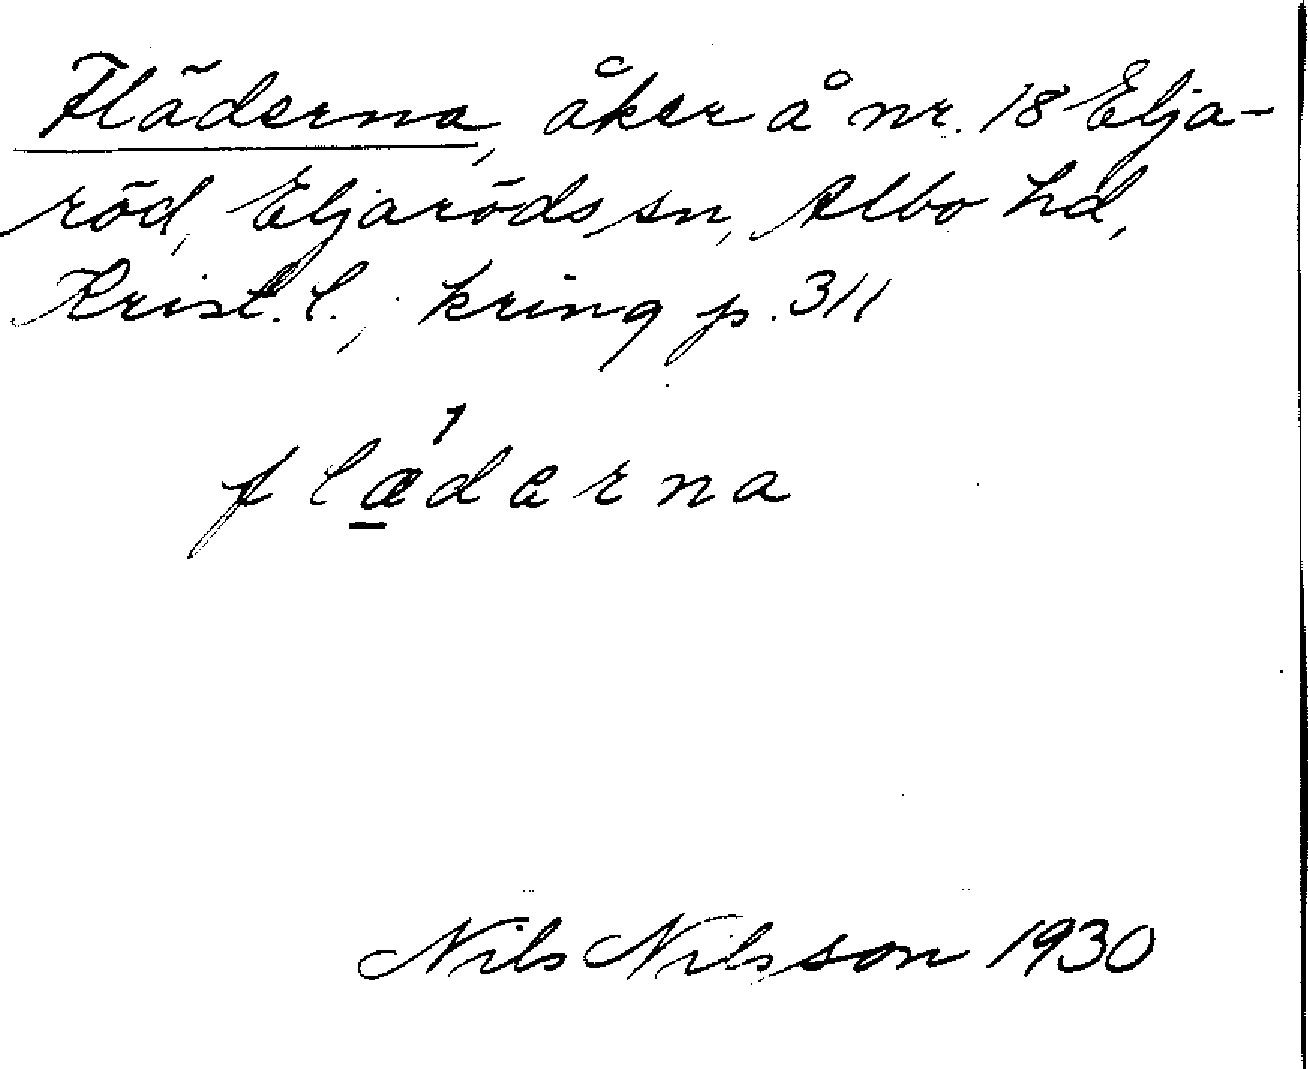 Fläderna, åker å nr. 18 Elja-
röd, Eljaröds sn, Albo hd,
Krist. l., kring p. 311
flǽ̲derna
Nils Nilsson 1930